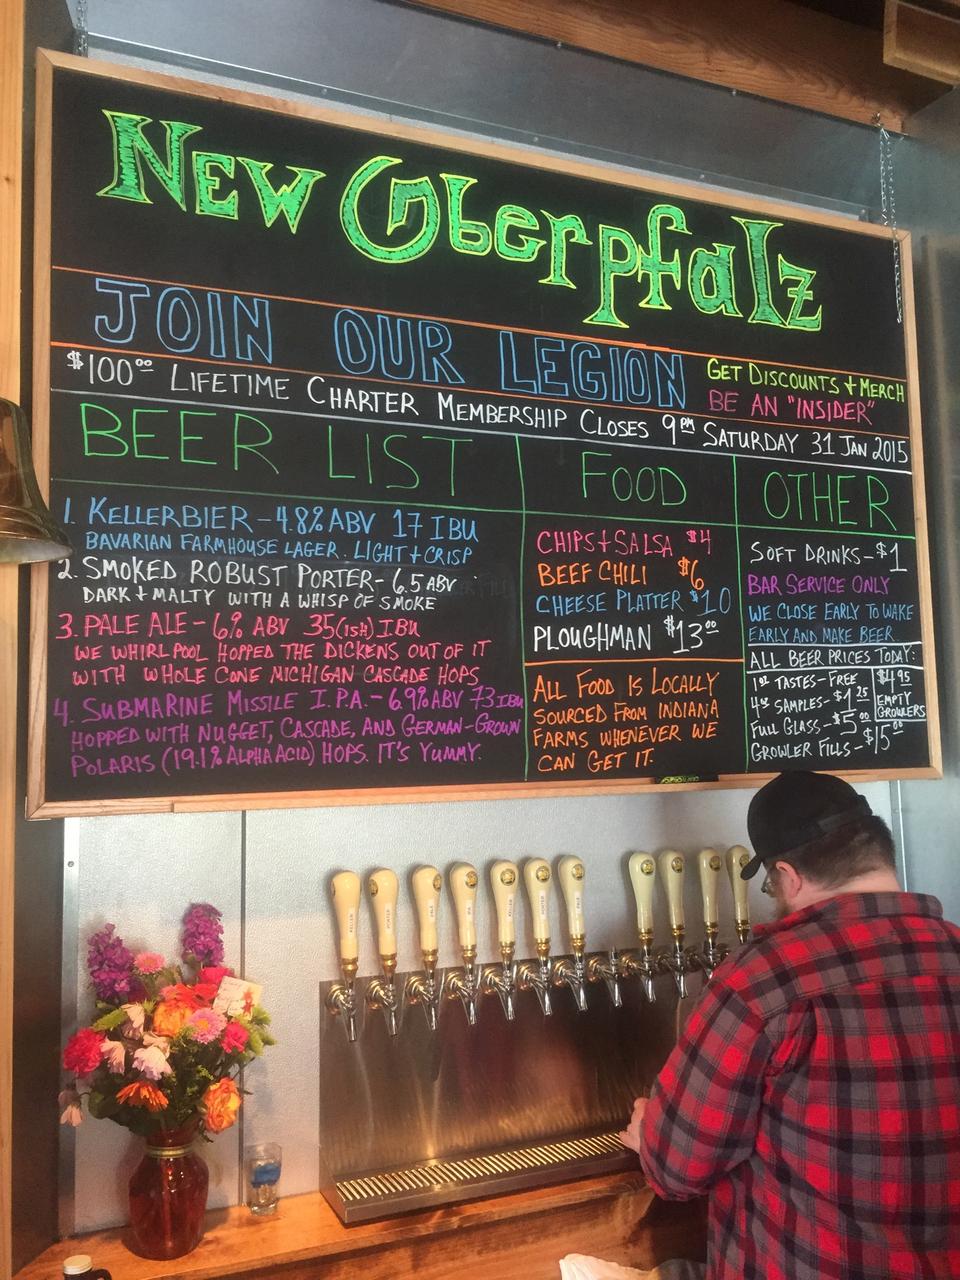 NEW Oberpfalz
JOIN OUR LEGION
GET DISCOUNTS + MERCH
BE AN "INSIDER"
$100⁰⁰ LIFETIME CHARTER MEMBERSHIP CLOSES 9PM SATURDAY 31 JAN 2015
BEER LIST
1. KELLERBIER - 4.8% ABV 17 IBU
BAVARIAN FARMHOUSE LAGER. LIGHT + CRISP
2. SMOKED ROBUST PORTER - 6.5 ABV
DARK + MALTY WITH A WHISP OF SMOKE
3. PALE ALE - 6% ABV 35(ISH) IBU
WE WHIRLPOOL HOPPED THE DICKENS OUT OF IT
WITH WHOLE CONE MICHIGAN CASCADE HOPS
4. SUBMARINE MISSILE I.P.A. - 6.9% ABV 73 IBU
HOPPED WITH NUGGET, CASCADE, AND GERMAN-GROWN
POLARIS (19.1% ALPHA ACID) HOPS. IT'S YUMMY.
FOOD
CHIPS + SALSA $4
BEEF CHILI $6
CHEESE PLATTER $10
PLOUGHMAN $13⁰⁰
ALL FOOD IS LOCALLY
SOURCED FROM INDIANA
FARMS WHENEVER WE
CAN GET IT.
OTHER
SOFT DRINKS - $1
BAR SERVICE ONLY
WE CLOSE EARLY TO WAKE
EARLY AND MAKE BEER.
ALL BEER PRICES TODAY:
1ST TASTES - FREE
4OZ SAMPLES - $1.25
FULL GLASS - $5.00
GROWLER FILLS - $15⁰⁰
$4.95
EMPTY
GROWLERS